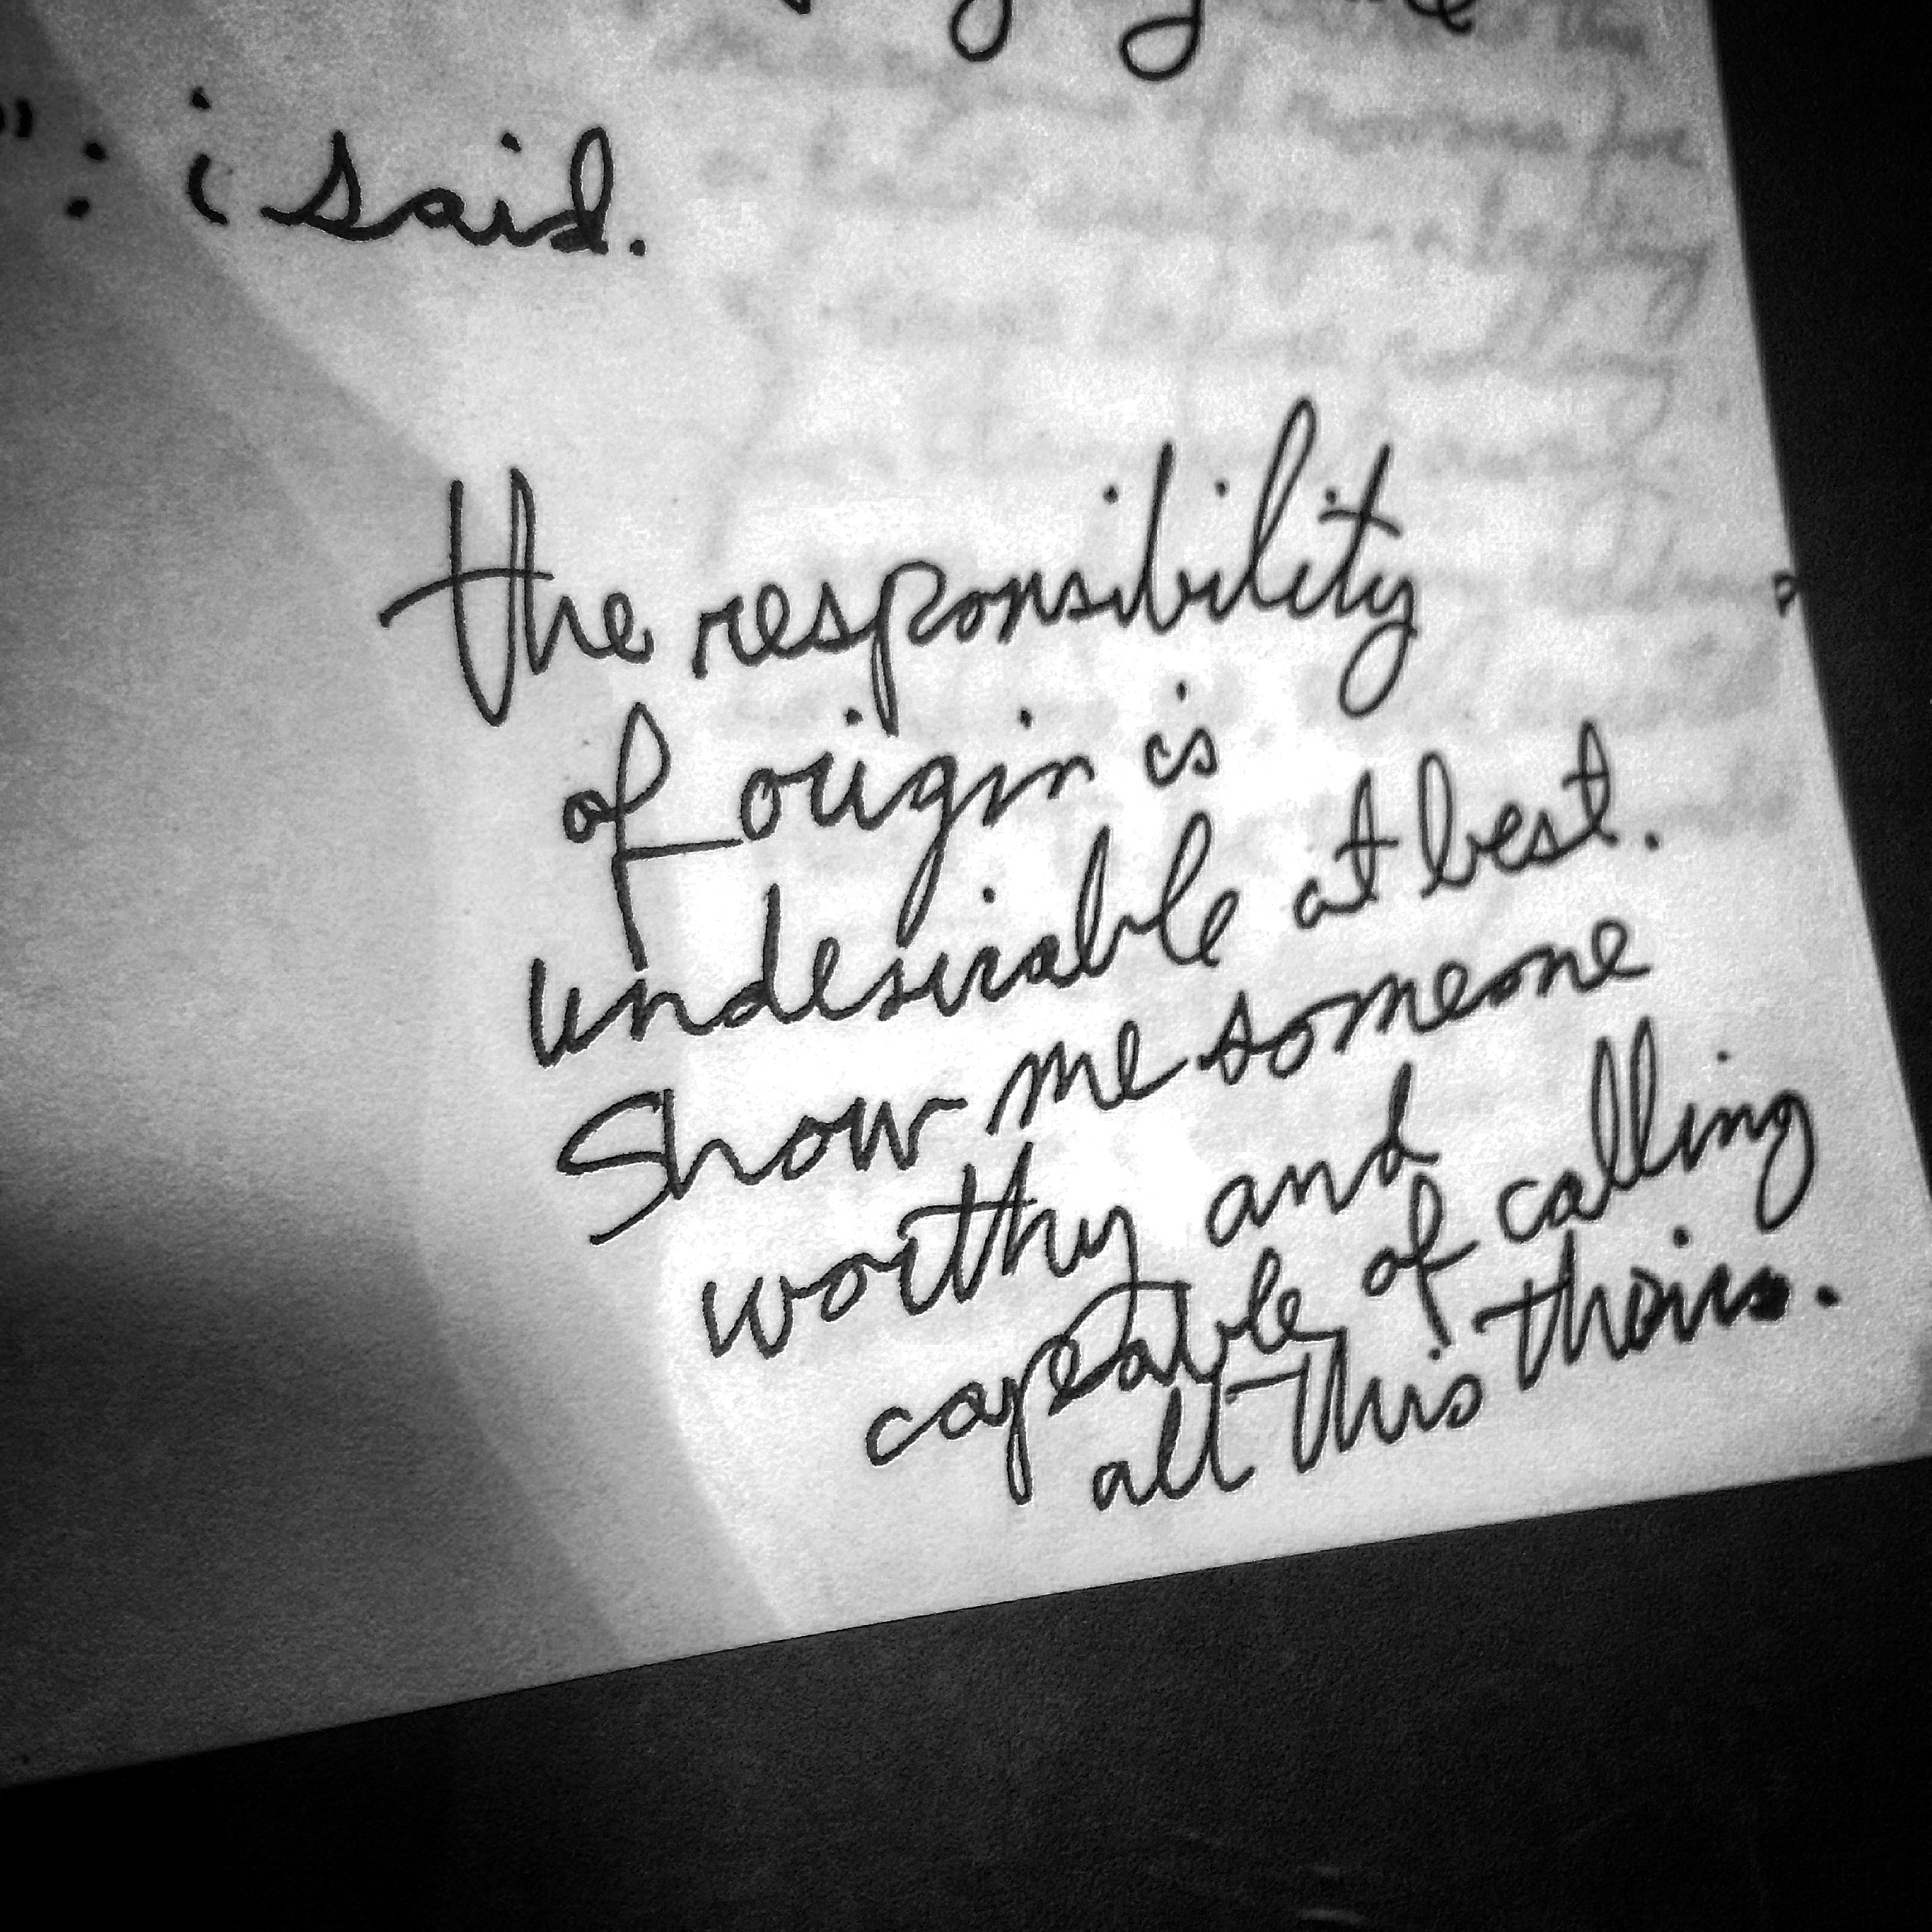 ": i said.
the responsibility
of origin is
undesirable at best.
Show me someone
worthy and
capeable of calling
all this theirs.